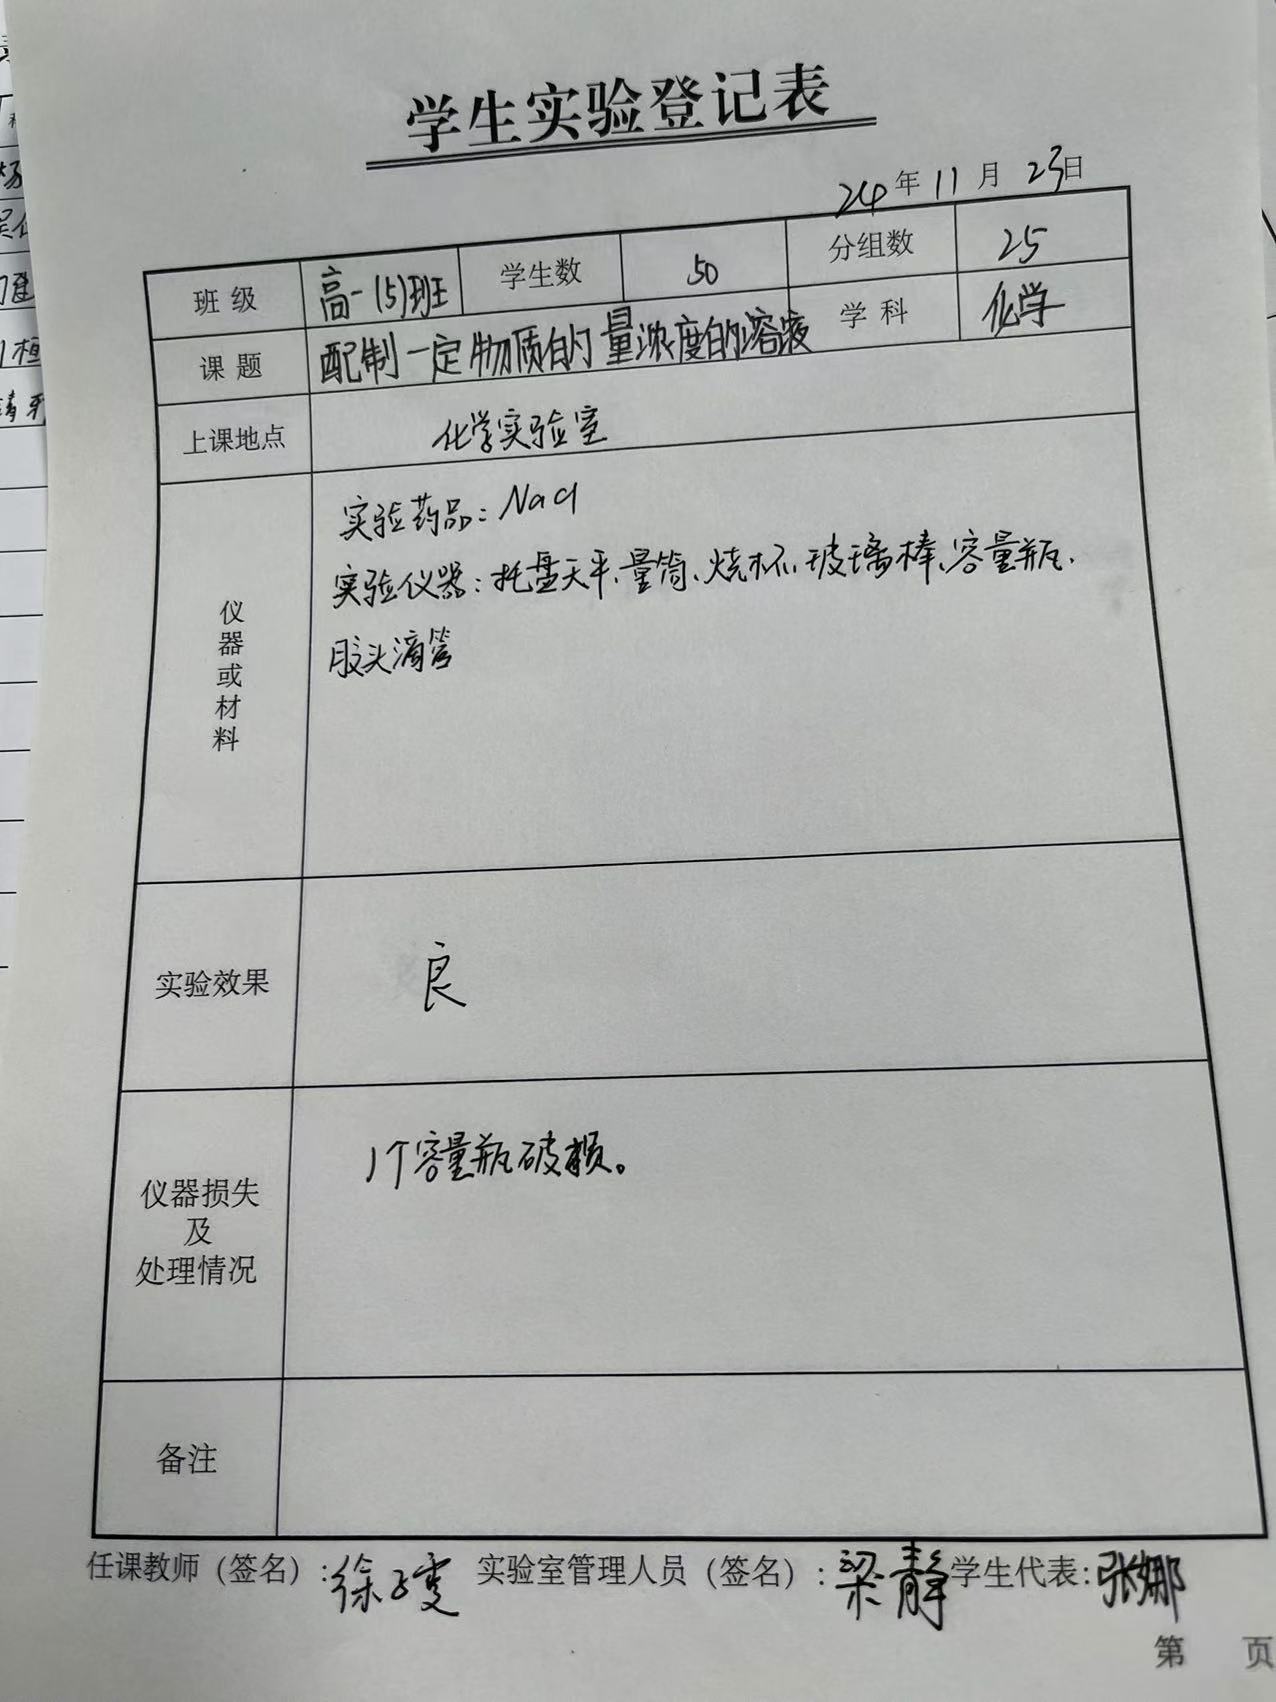 学生实验登记表
24年11月23日
班级 高一(5)班 学生数 50 分组数 25
课题 配制一定物质的量浓度的溶液 学科 化学
上课地点 化学实验室
仪器或材料
实验药品：NaCl
实验仪器：托盘天平、量筒、烧杯、玻璃棒、容量瓶、
胶头滴管
实验效果 良
仪器损失
及
处理情况
1个容量瓶破损。
备注
任课教师（签名）：徐子雯 实验室管理人员（签名）：梁静 学生代表：张娜
第 页